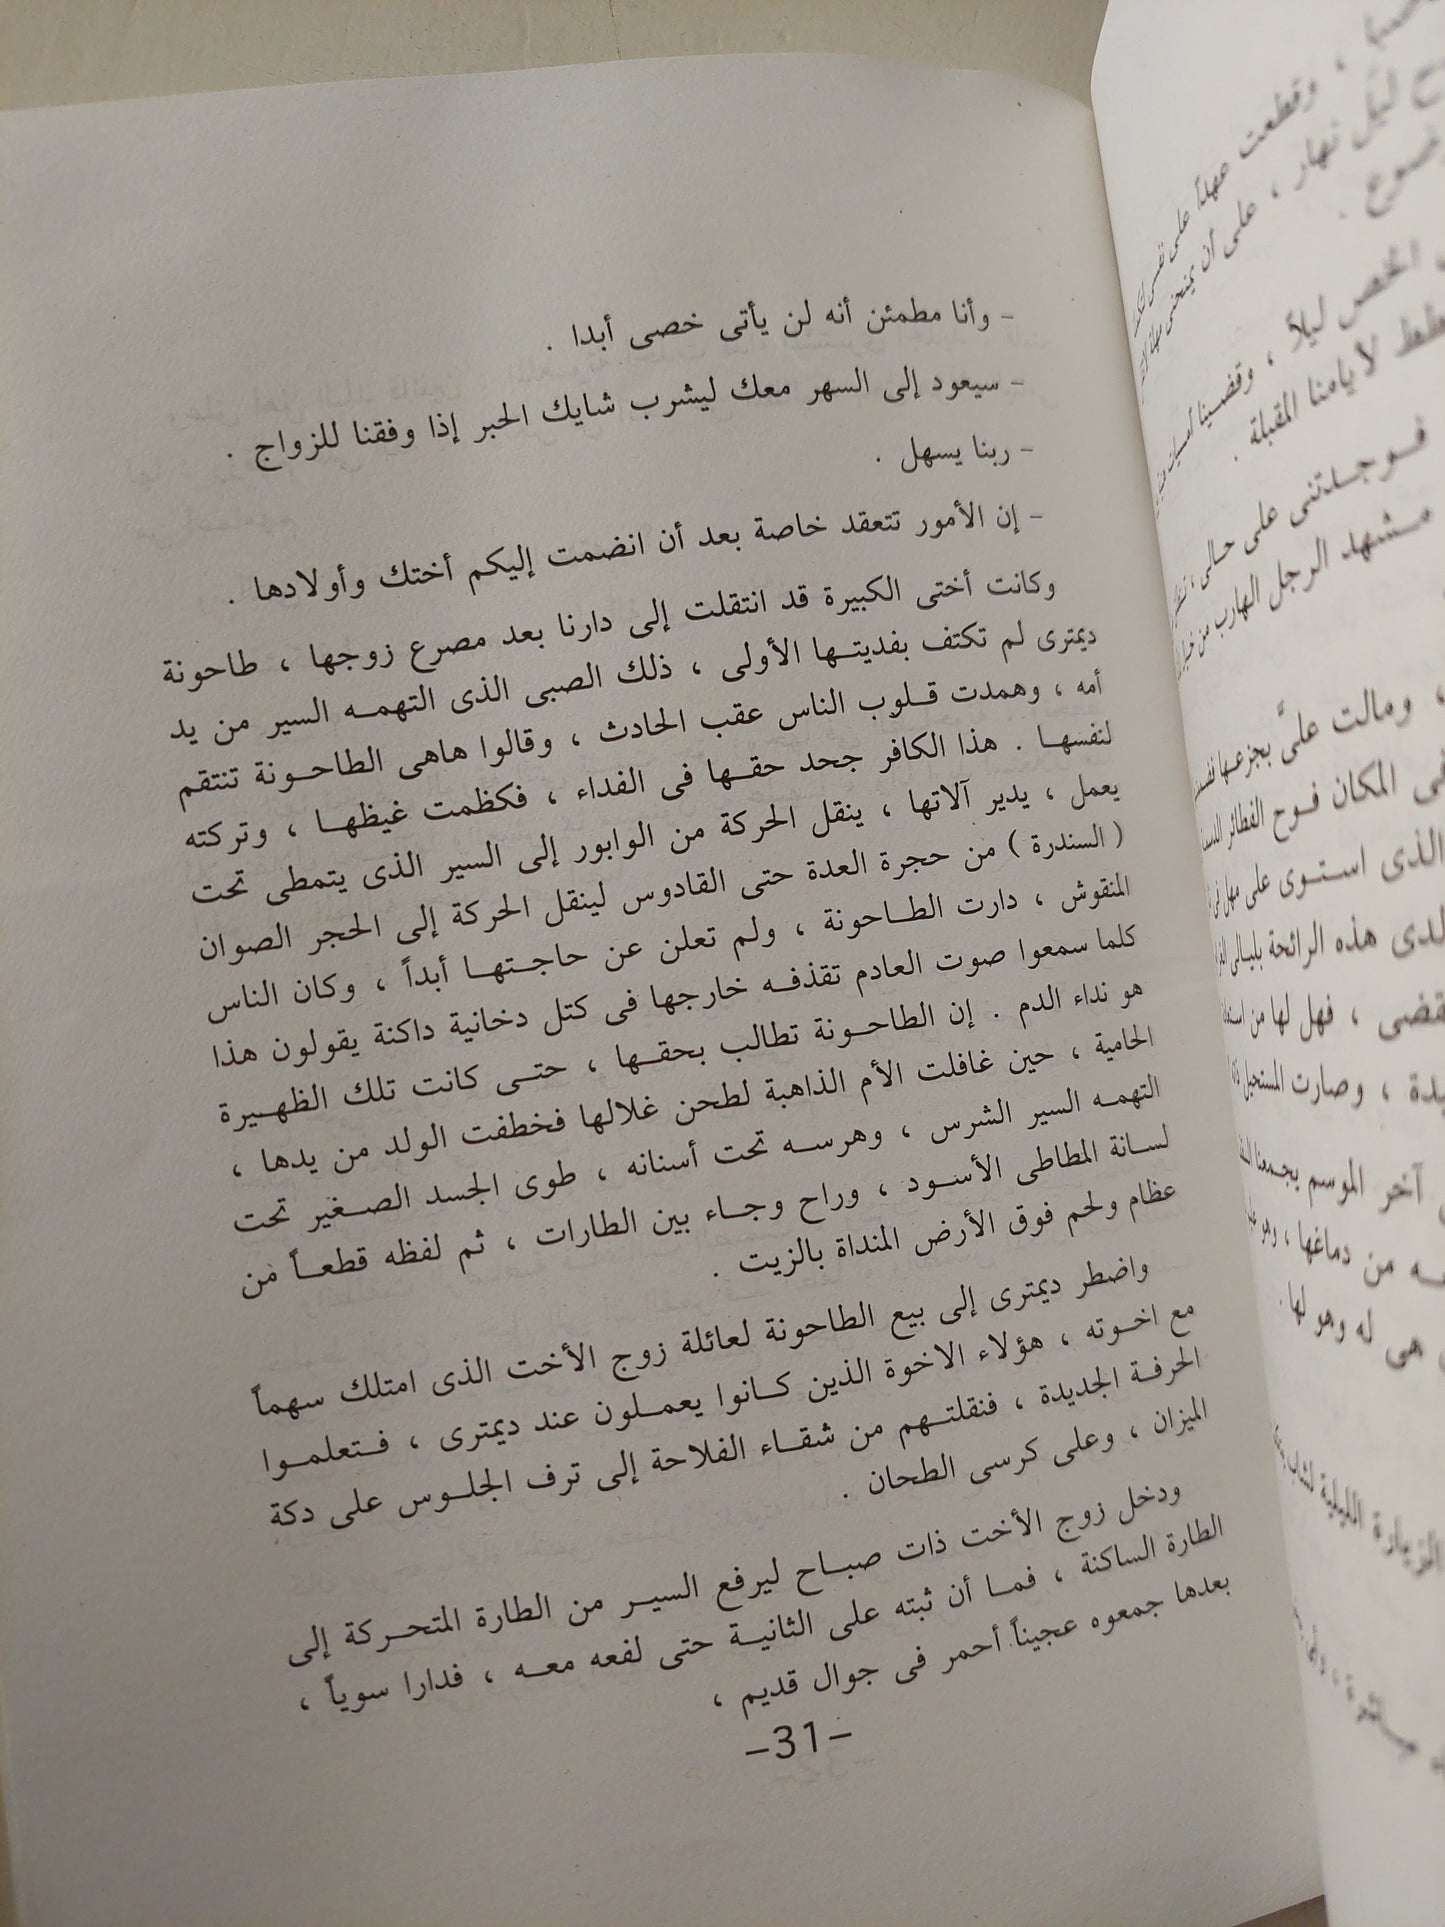 - وأنا مطمئن أنه لن يأتى خصى أبدا .
- سيعود إلى السهر معك ليشرب شايك الحبر إذا وفقنا للزواج .
- ربنا يسهل .
- إن الأمور تتعقد خاصة بعد أن انضمت إليكم أختك وأولادها .
وكانت أختى الكبيرة قد انتقلت إلى دارنا بعد مصرع زوجها ، طاحونة
ديمترى لم تكتف بفديتها الأولى ، ذلك الصبى الذى التهمه السير من يد
أمه ، وهمدت قلوب الناس عقب الحادث ، وقالوا هاهى الطاحونة تنتقم
لنفسها . هذا الكافر جحد حقها فى الفداء ، فكظمت غيظها ، وتركته
يعمل ، يدير آلاتها ، ينقل الحركة من الوابور إلى السير الذى يتمطى تحت
( السندرة ) من حجرة العدة حتى القادوس لينقل الحركة إلى الحجر الصوان
المنقوش ، دارت الطاحونة ، ولم تعلن عن حاجتها أبداً ، وكان الناس
كلما سمعوا صوت العادم تقذفه خارجها فى كتل دخانية داكنة يقولون هذا
هو نداء الدم . إن الطاحونة تطالب بحقها ، حتى كانت تلك الظهيرة
الحامية ، حين غافلت الأم الذاهبة لطحن غلالها فخطفت الولد من يدها ،
التهمه السير الشرس ، وهرسه تحت أسنانه ، طوى الجسد الصغير تحت
لسانة المطاطى الأسود ، وراح وجاء بين الطارات ، ثم لفظه قطعاً من
عظام ولحم فوق الأرض المنداة بالزيت .
واضطر ديمترى إلى بيع الطاحونة لعائلة زوج الأخت الذى امتلك سهماً
مع اخوته ، هؤلاء الاخوة الذين كانوا يعملون عند ديمترى ، فتعلموا
الحرفة الجديدة ، فنقلتهم من شقاء الفلاحة إلى ترف الجلوس على دكة
الميزان ، وعلى كرسى الطحان .
ودخل زوج الأخت ذات صباح ليرفع السير من الطارة المتحركة إلى
الطارة الساكنة ، فما أن ثبته على الثانية حتى لفعه معه ، فدارا سوياً ،
بعدها جمعوه عجيناً أحمر فى جوال قديم ،
-31-
، وقطعت عهداً على نفسى
ليل نهار ، على أن يمنحنى
الخص ليلاً ، وقضينا أمسيات
لأيامنا المقبلة .
فوجدتنى على حالى ،
مشهد الرجل الهارب من
، ومالت علىَّ بجزعها
المكان فوح الفطائر
الذى استوى على مهل فى
هذه الرائحة بليالى
، فهل لها من
، وصارت المستحيل
آخر الموسم يجمعنا
من دماغها ، وهو
هى له وهو لها .
الزيارة الليلية